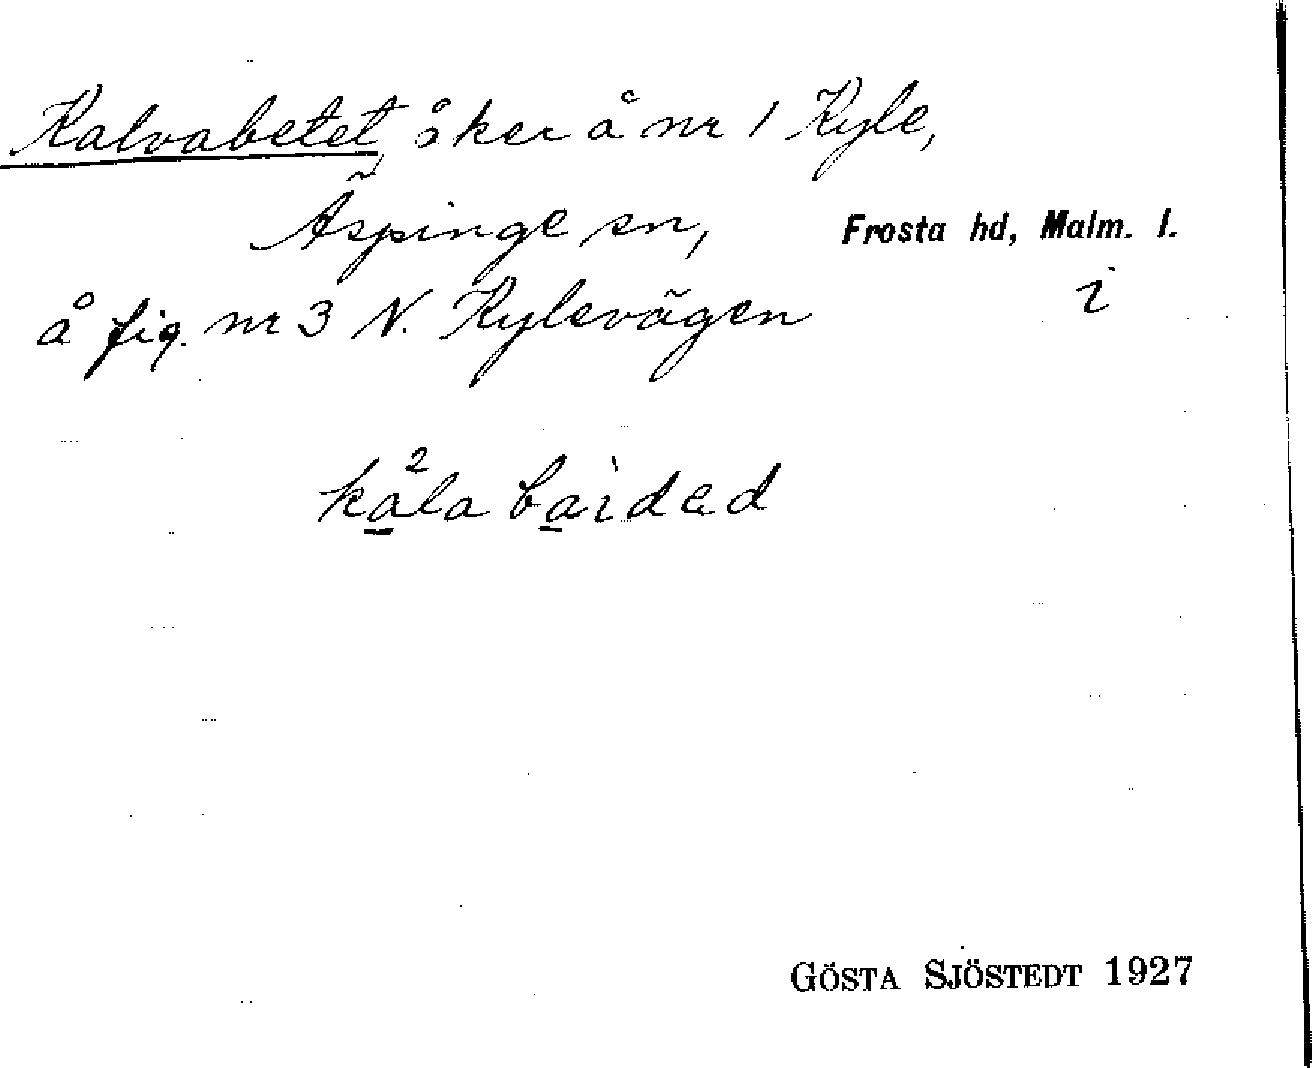 Kalvabetet, åker å nr 1 Kyle,
Äspinge sn, Frosta hd, Malm. l.
å fig. nr 3 N. Kylevägen i
kala baidad
GÖSTA SJÖSTEDT 1927